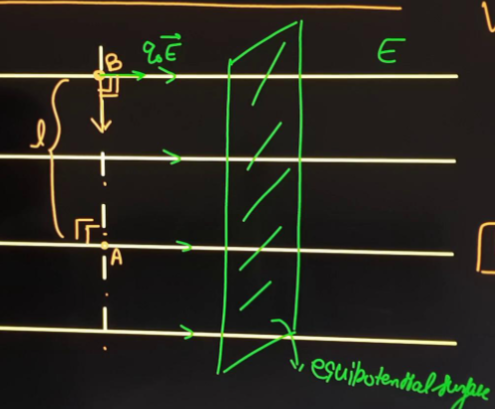 B
q₀E⃗
E
l
A
equipotential surface